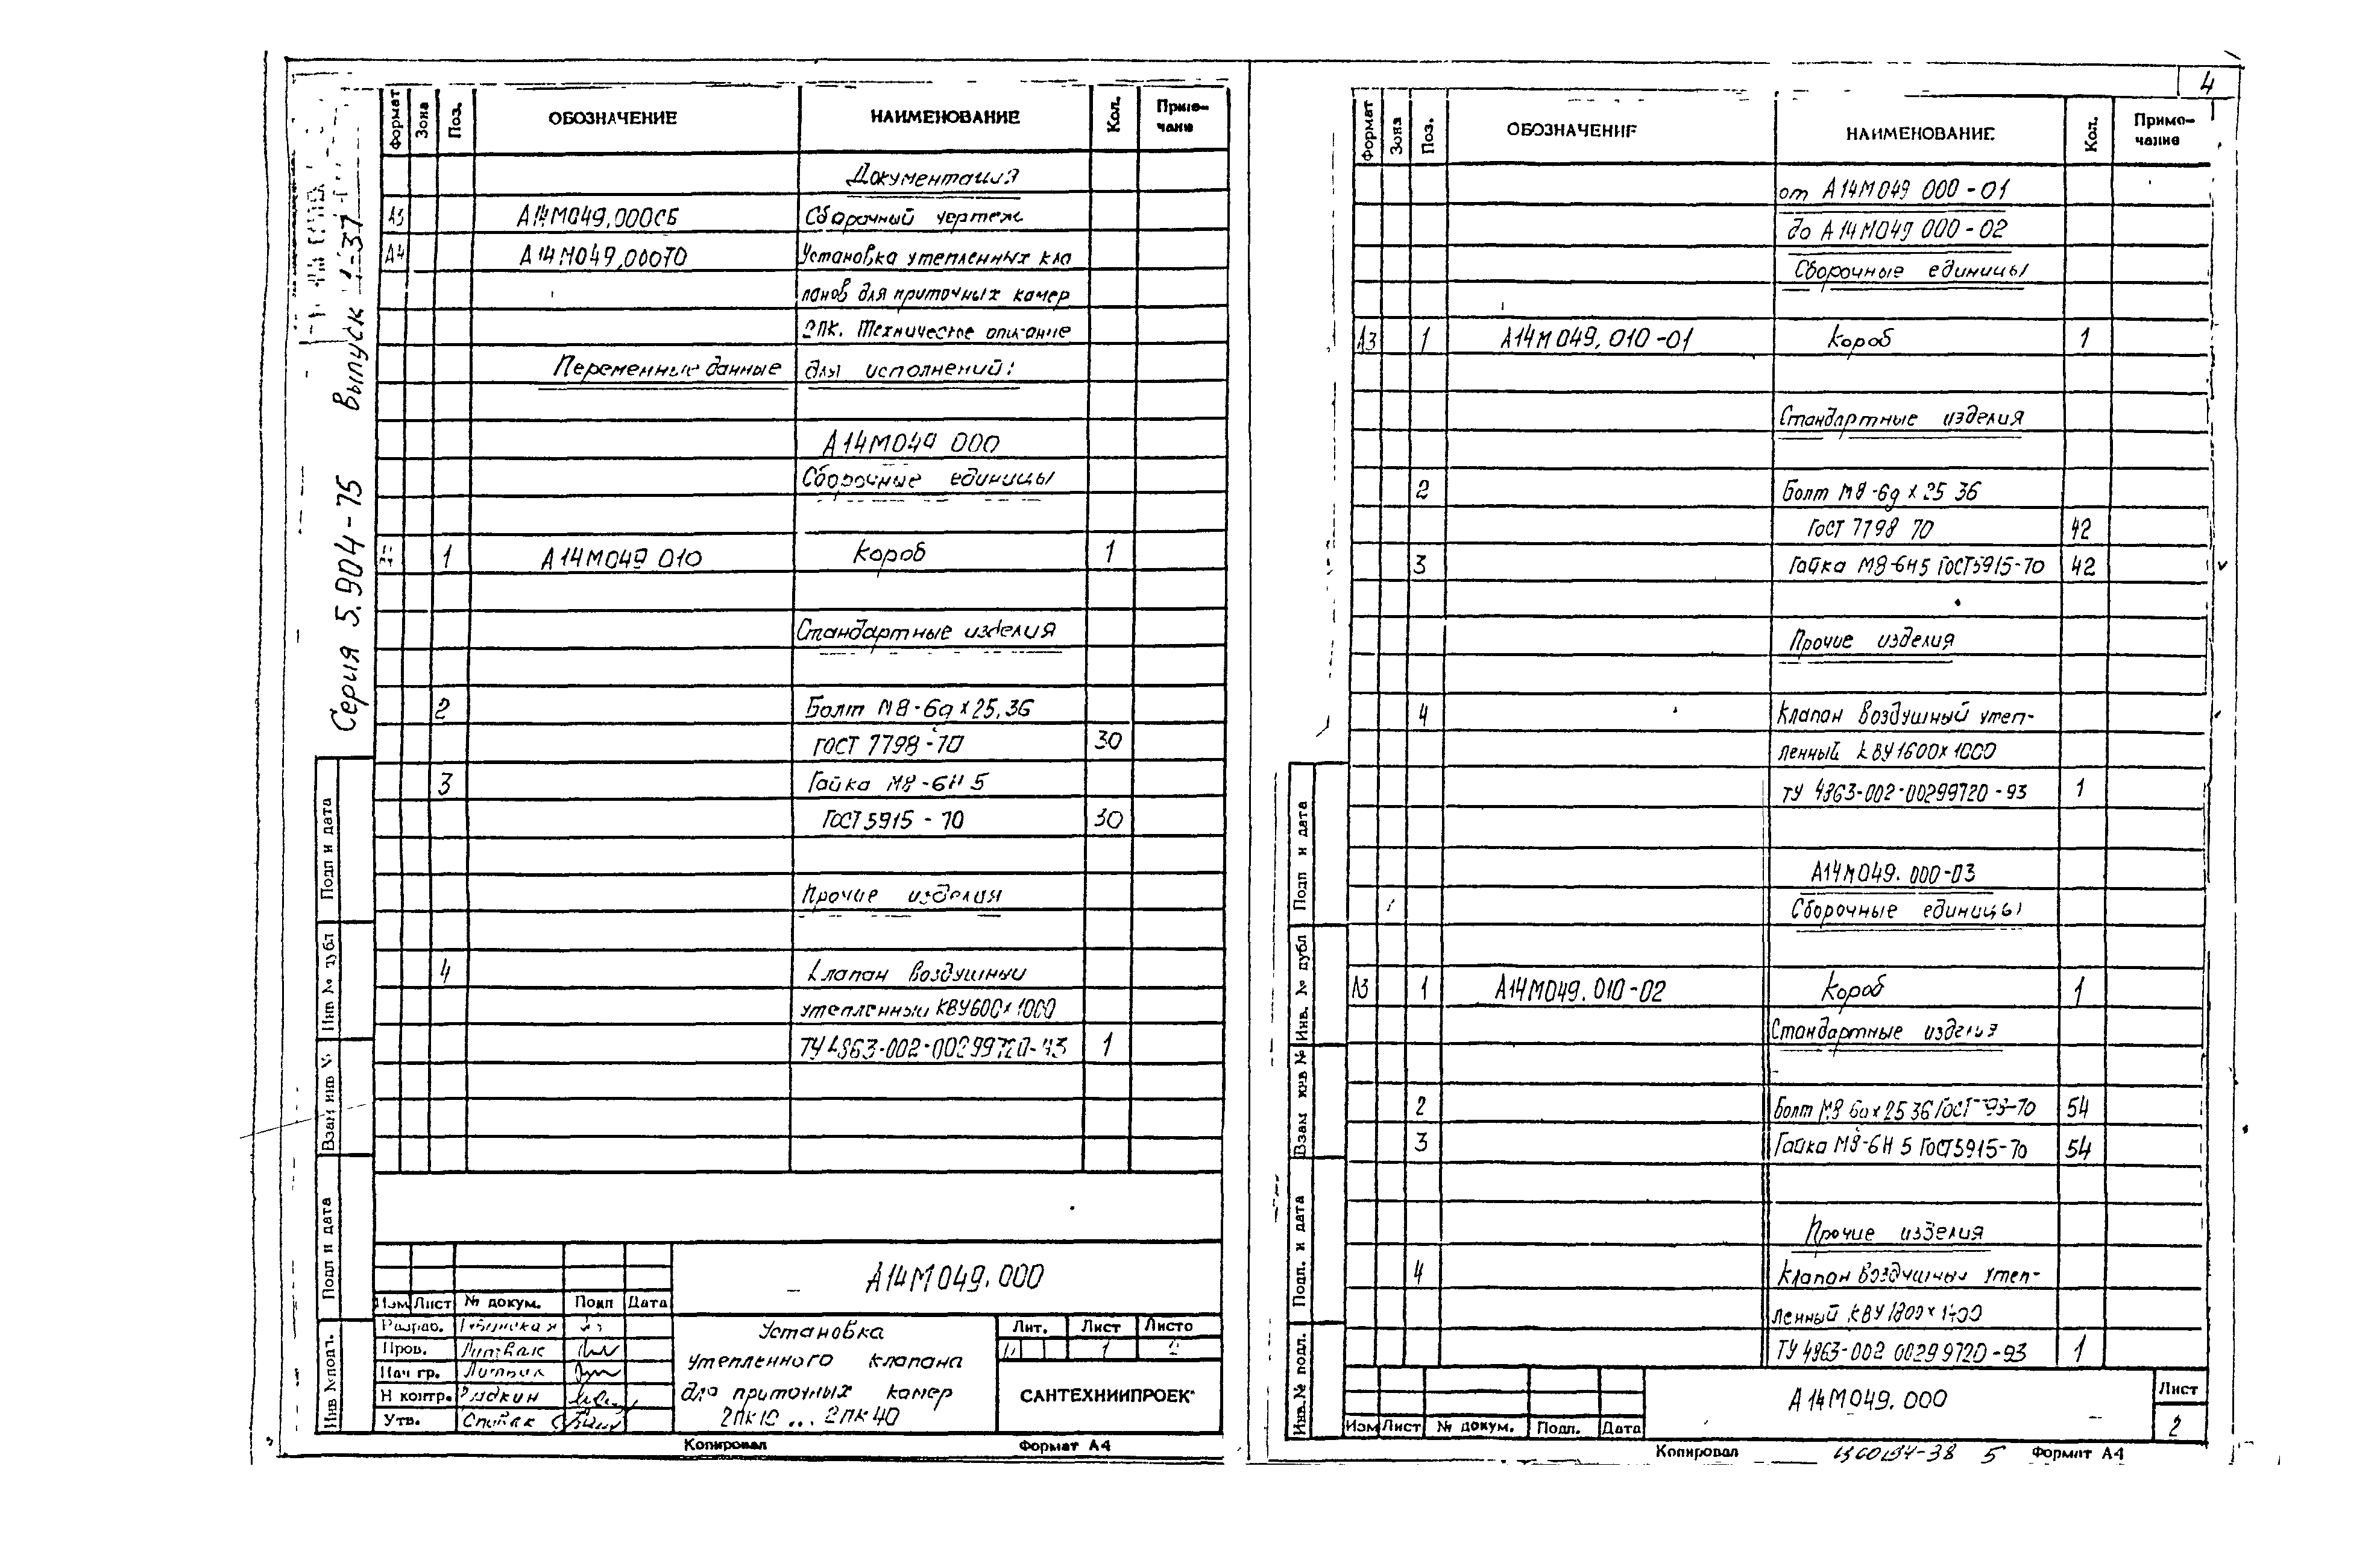 4
Серия 5.904-75 Выпуск 1-37
Формат Зона Поз. ОБОЗНАЧЕНИЕ НАИМЕНОВАНИЕ Кол. Приме-
чани
Документация
А3 А14М049,000СБ Сборочный чертеж
А4 А14М049,000ТО Установка утепленных кла
панов для приточных камер
2ПК. Техническое описание
Переменные данные для исполнений:
А14М049 000
Сборочные единицы
1 А14М049 010 Короб 1
Стандартные изделия
2 Болт М8-6g х 25,36
ГОСТ 7798-70 30
3 Гайка М8-6Н 5
ГОСТ 5915-70 30
Прочие изделия
4 Клапан воздушный
утепленный КВУ600х1000
ТУ 4863-002-00299720-93 1
А14М049.000
Изм Лист № докум. Подп Дата
Разраб.
Пров. Литвак
Нач гр. Литвак
Н контр.
Утв. Спивак
Установка
утепленного клапана
для приточных камер
2ПК10 ... 2ПК40
Лит. Лист Листо
1 2
САНТЕХНИИПРОЕК
Копировал Формат А4
Подп и дата
Инв № дубл
Взам инв №
Подп и дата
Инв № подл.
Формат Зона Поз. ОБОЗНАЧЕНИЕ НАИМЕНОВАНИЕ Кол. Приме-
чание
от А14М049 000-01
до А14М049 000-02
Сборочные единицы
А3 1 А14М049.010-01 Короб 1
Стандартные изделия
2 Болт М8-6g х 25 36
ГОСТ 7798 70 42
3 Гайка М8-6Н5 ГОСТ5915-70 42
Прочие изделия
4 Клапан воздушный утеп-
ленный КВУ1600х1000
ТУ 4863-002-00299720-93 1
А14М049.000-03
Сборочные единицы
А3 1 А14М049.010-02 Короб 1
Стандартные изделия
2 Болт М8 6g х 25 36 ГОСТ 98-70 54
3 Гайка М8-6Н 5 ГОСТ5915-70 54
Прочие изделия
4 Клапан воздушный утеп-
ленный КВУ 1800х1400
ТУ 4863-002 00299720-93 1
А14М049.000
Лист
2
Изм Лист № докум. Подп. Дата
Копировал 5 Формат А4
Подп и дата
Инв. № дубл
Взам инв №
Подп. и дата
Инв. № подл.